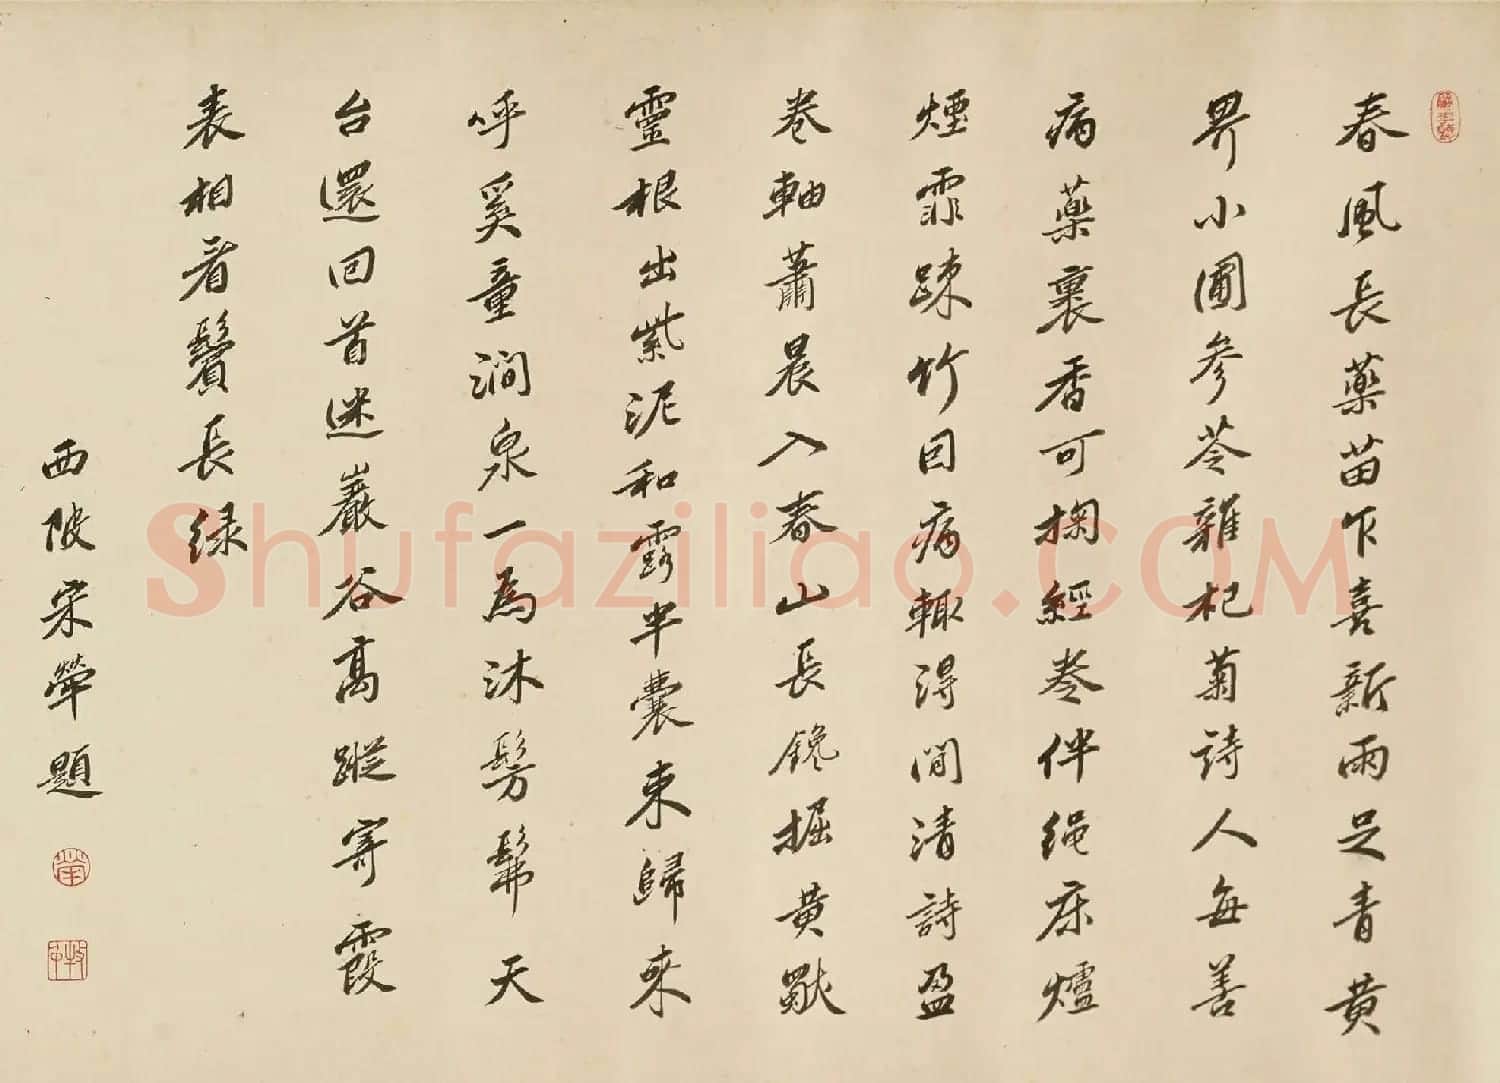 春風長藥苗乍喜新雨足青黃
畀小圃參苓雜杞菊詩人每善
病藥裹香可掬經卷伴繩床爐
煙霏疎竹因病輒得閒清詩盈
卷軸蕭晨入春山長鑱掘黃獨
靈根出紫泥和雲半囊束歸來
呼奚童澗泉一為沐髣髴天
台還回首迷巖谷高蹤寄霞
表相看鬢長绿
西陂宋犖題
Shufaziliao.COM